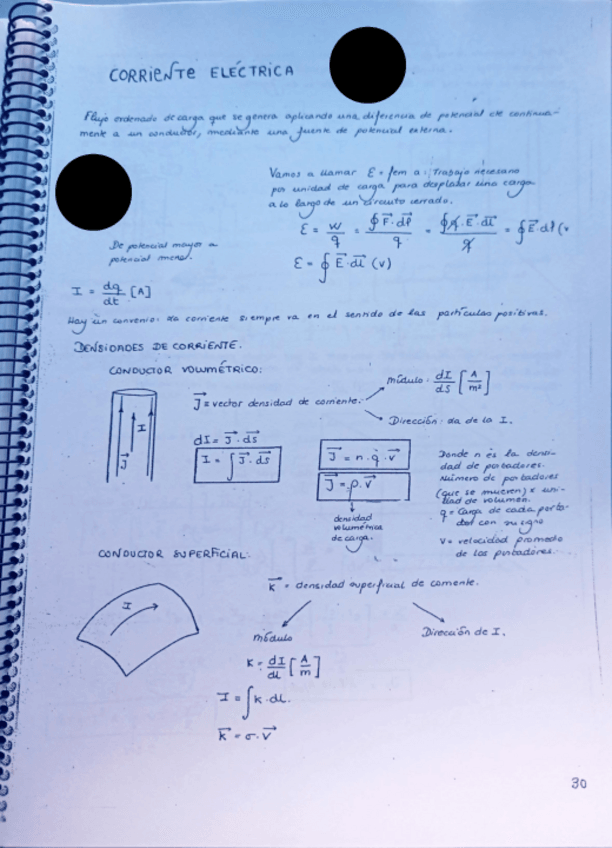 CORRIENTE ELÉCTRICA
Flujo ordenado de carga que se genera aplicando una diferencia de potencial cte continua-
mente a un conductor, mediante una fuente de potencial externa.
Vamos a llamar Ɛ = fem a: Trabajo necesario
por unidad de carga para desplazar una carga
a lo largo de un circuito cerrado.
Ɛ = W/q = ∮F⃗·dl⃗/q = ∮q·E⃗·dl⃗/q = ∮E⃗·dl (V
De potencial mayor a
potencial menor.
Ɛ = ∮E⃗·dl⃗ (V)
I = dq/dt [A]
Hay un convenio: La corriente siempre va en el sentido de las partículas positivas.
DENSIDADES DE CORRIENTE.
CONDUCTOR VOLUMÉTRICO:
módulo: dI/dS [A/m²]
J⃗ = vector densidad de corriente.
Dirección: La de la I.
I
J⃗
dI = J⃗·dS⃗
I = ∫J⃗·dS⃗
J⃗ = n·q·v⃗
J⃗ = ρ·v⃗
densidad
volumétrica
de carga.
Donde n es la densi-
dad de portadores.
Número de portadores
(que se mueven) x uni-
dad de volumen.
q = Carga de cada porta-
dor con su signo
v = velocidad promedio
de los portadores.
CONDUCTOR SUPERFICIAL:
I
K⃗ = densidad superficial de corriente.
módulo
Dirección de I.
K = dI/dL [A/m]
I = ∫K·dL.
K⃗ = σ·v⃗
30